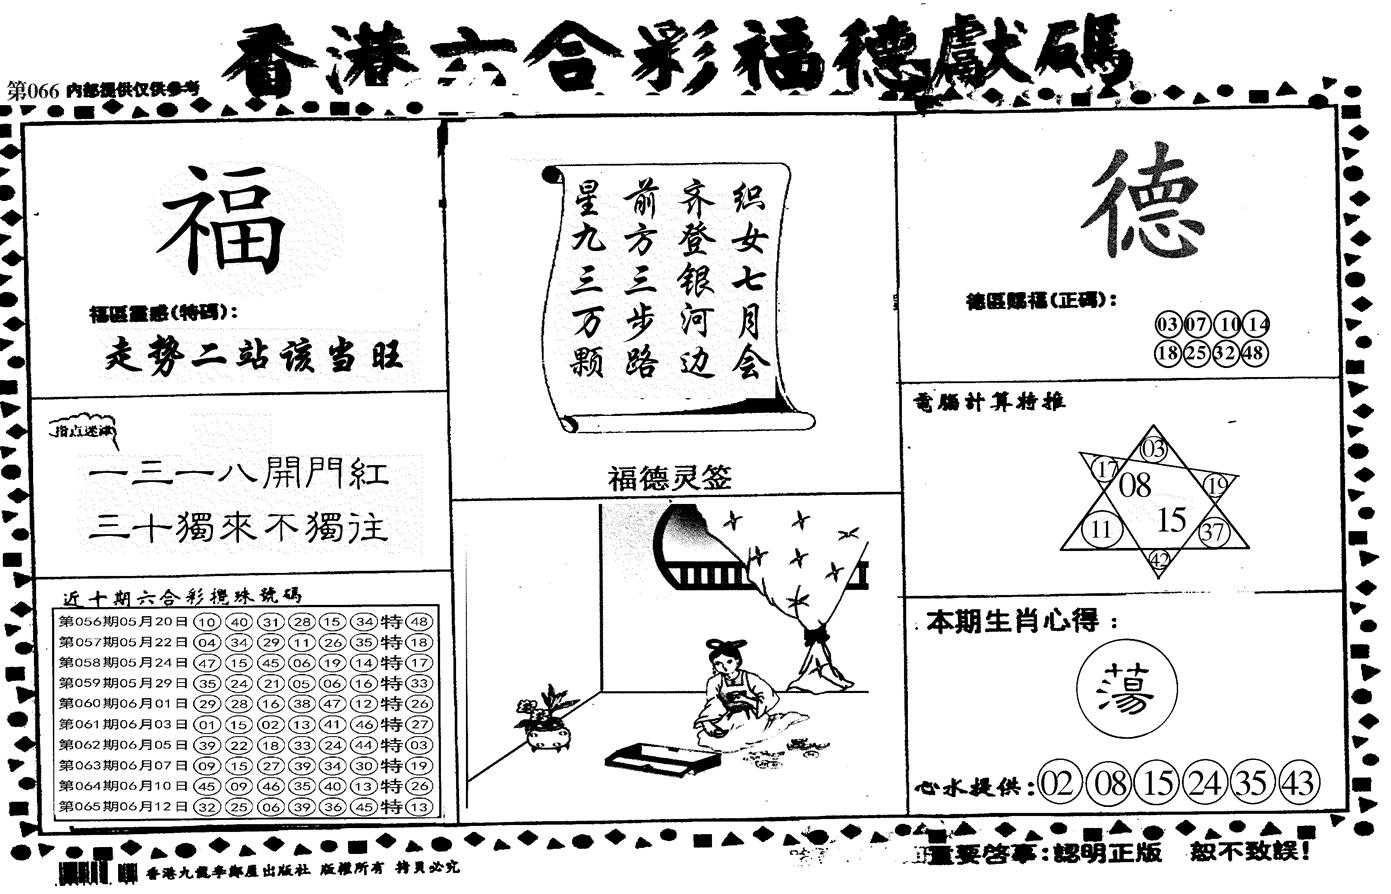 香港六合彩福德獻碼
第066 内部提供仅供参考
福
福區靈感(特碼):
走势二站该当旺
指点迷津
一三一八開門紅
三十獨來不獨往
近十期六合彩攪珠號碼
第056期05月20日 10 40 31 28 15 34 特 48
第057期05月22日 04 34 29 11 26 35 特 18
第058期05月24日 47 15 45 06 19 14 特 17
第059期05月29日 35 24 21 05 06 16 特 33
第060期06月01日 29 28 16 38 47 12 特 26
第061期06月03日 01 15 02 13 41 46 特 27
第062期06月05日 39 22 18 33 24 44 特 03
第063期06月07日 09 15 27 39 34 30 特 19
第064期06月10日 45 09 46 35 40 13 特 26
第065期06月12日 32 25 06 39 36 45 特 13
织女七月会
齐登银河边
前方三步路
星九三万颗
福德灵签
德
德區賜福(正碼):
03 07 10 14
18 25 32 48
電腦計算特推
03
17 08 19
11 15 37
42
本期生肖心得:
蕩
心水提供: 02 08 15 24 35 43
重要啓事:認明正版 恕不致誤!
香港九龍李鄭屋出版社 版權所有 拷貝必究